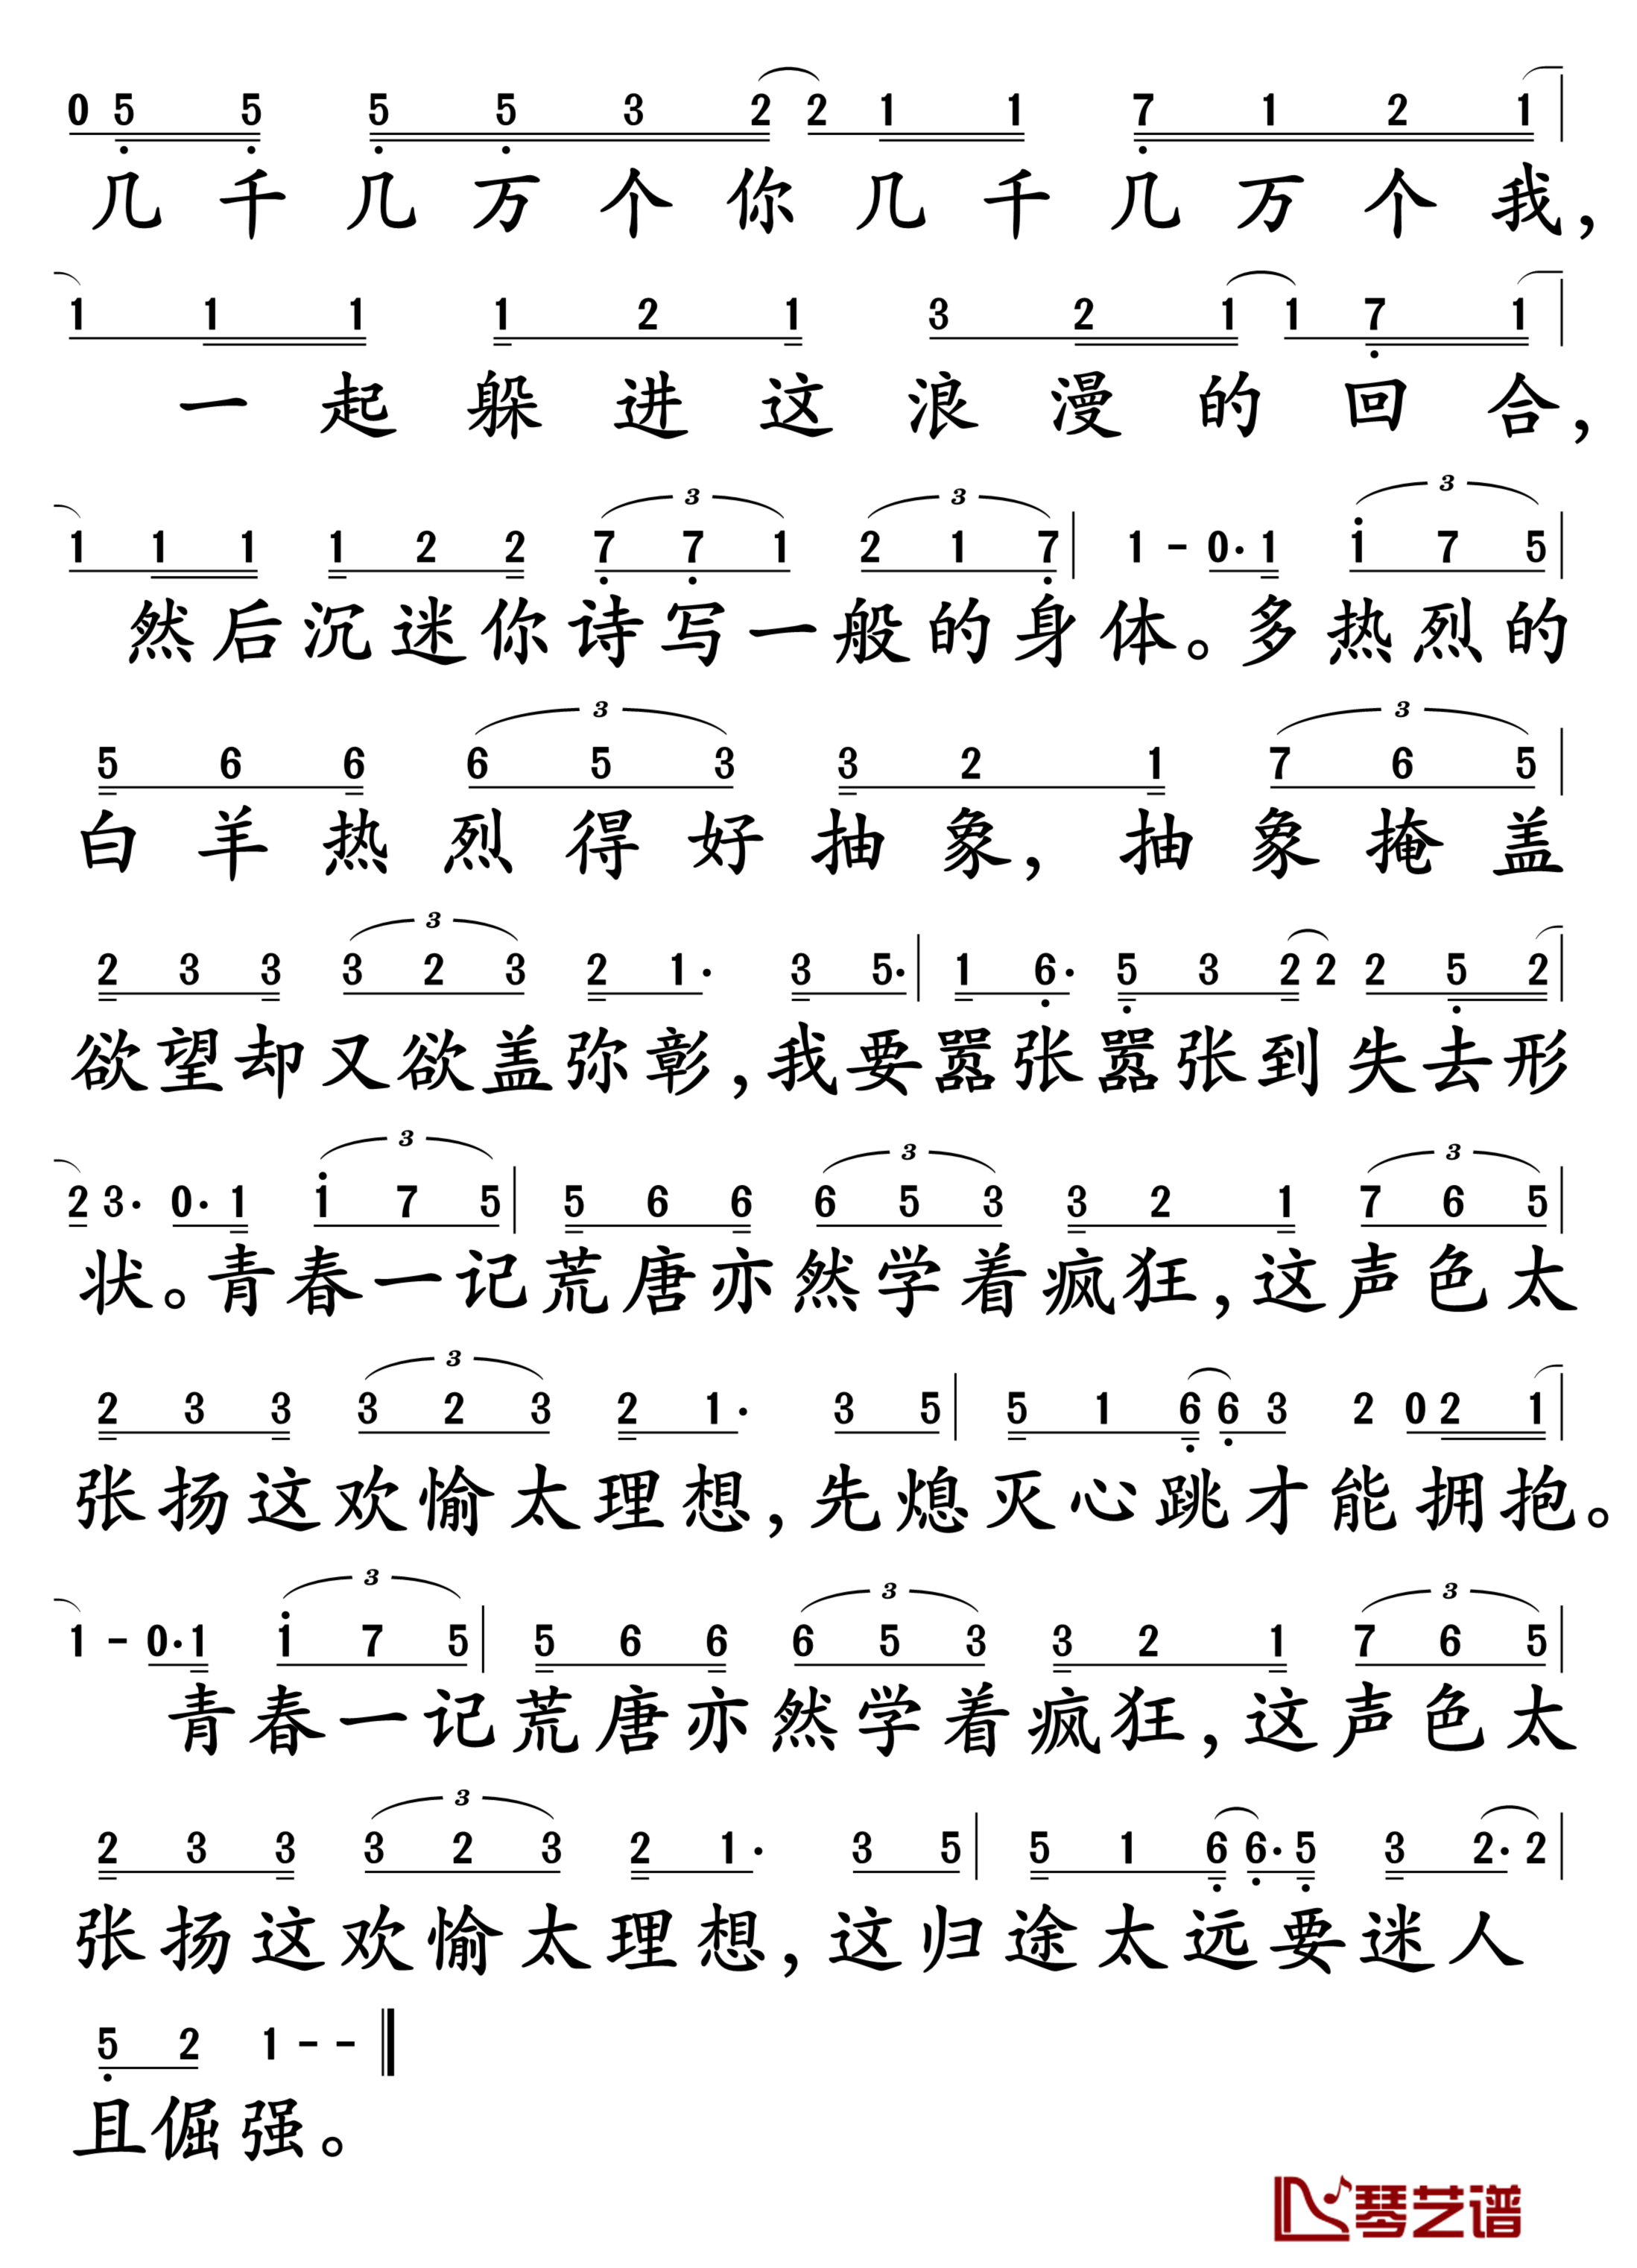 0 5 5 5 5 3 2 2 1 1 7 1 2 1
几千几万个你几千几万个我,
1 1 1 1 2 1 3 2 1 1 7 1
一起躲进这浪漫的回合,
3 3 3
1 1 1 1 2 2 7 7 1 2 1 7 1 - 0· 1 1 7 5
然后沉迷你诗写一般的身体。多热烈的
3 3
5 6 6 6 5 3 3 2 1 7 6 5
白羊热烈得好抽象,抽象掩盖
3
2 3 3 3 2 3 2 1· 3 5· 1 6· 5 3 2 2 2 5 2
欲望却又欲盖弥彰,我要嚣张嚣张到失去形
3 3 3
2 3· 0· 1 1 7 5 5 6 6 6 5 3 3 2 1 7 6 5
状。青春一记荒唐亦然学着疯狂,这声色太
3
2 3 3 3 2 3 2 1· 3 5 5 1 6 6 3 2 0 2 1
张扬这欢愉太理想,先熄灭心跳才能拥抱。
3 3 3
1 - 0· 1 1 7 5 5 6 6 6 5 3 3 2 1 7 6 5
青春一记荒唐亦然学着疯狂,这声色太
3
2 3 3 3 2 3 2 1· 3 5 5 1 6 6· 5 3 2· 2
张扬这欢愉太理想,这归途太远要迷人
5 2 1 - -
且倔强。
琴艺谱